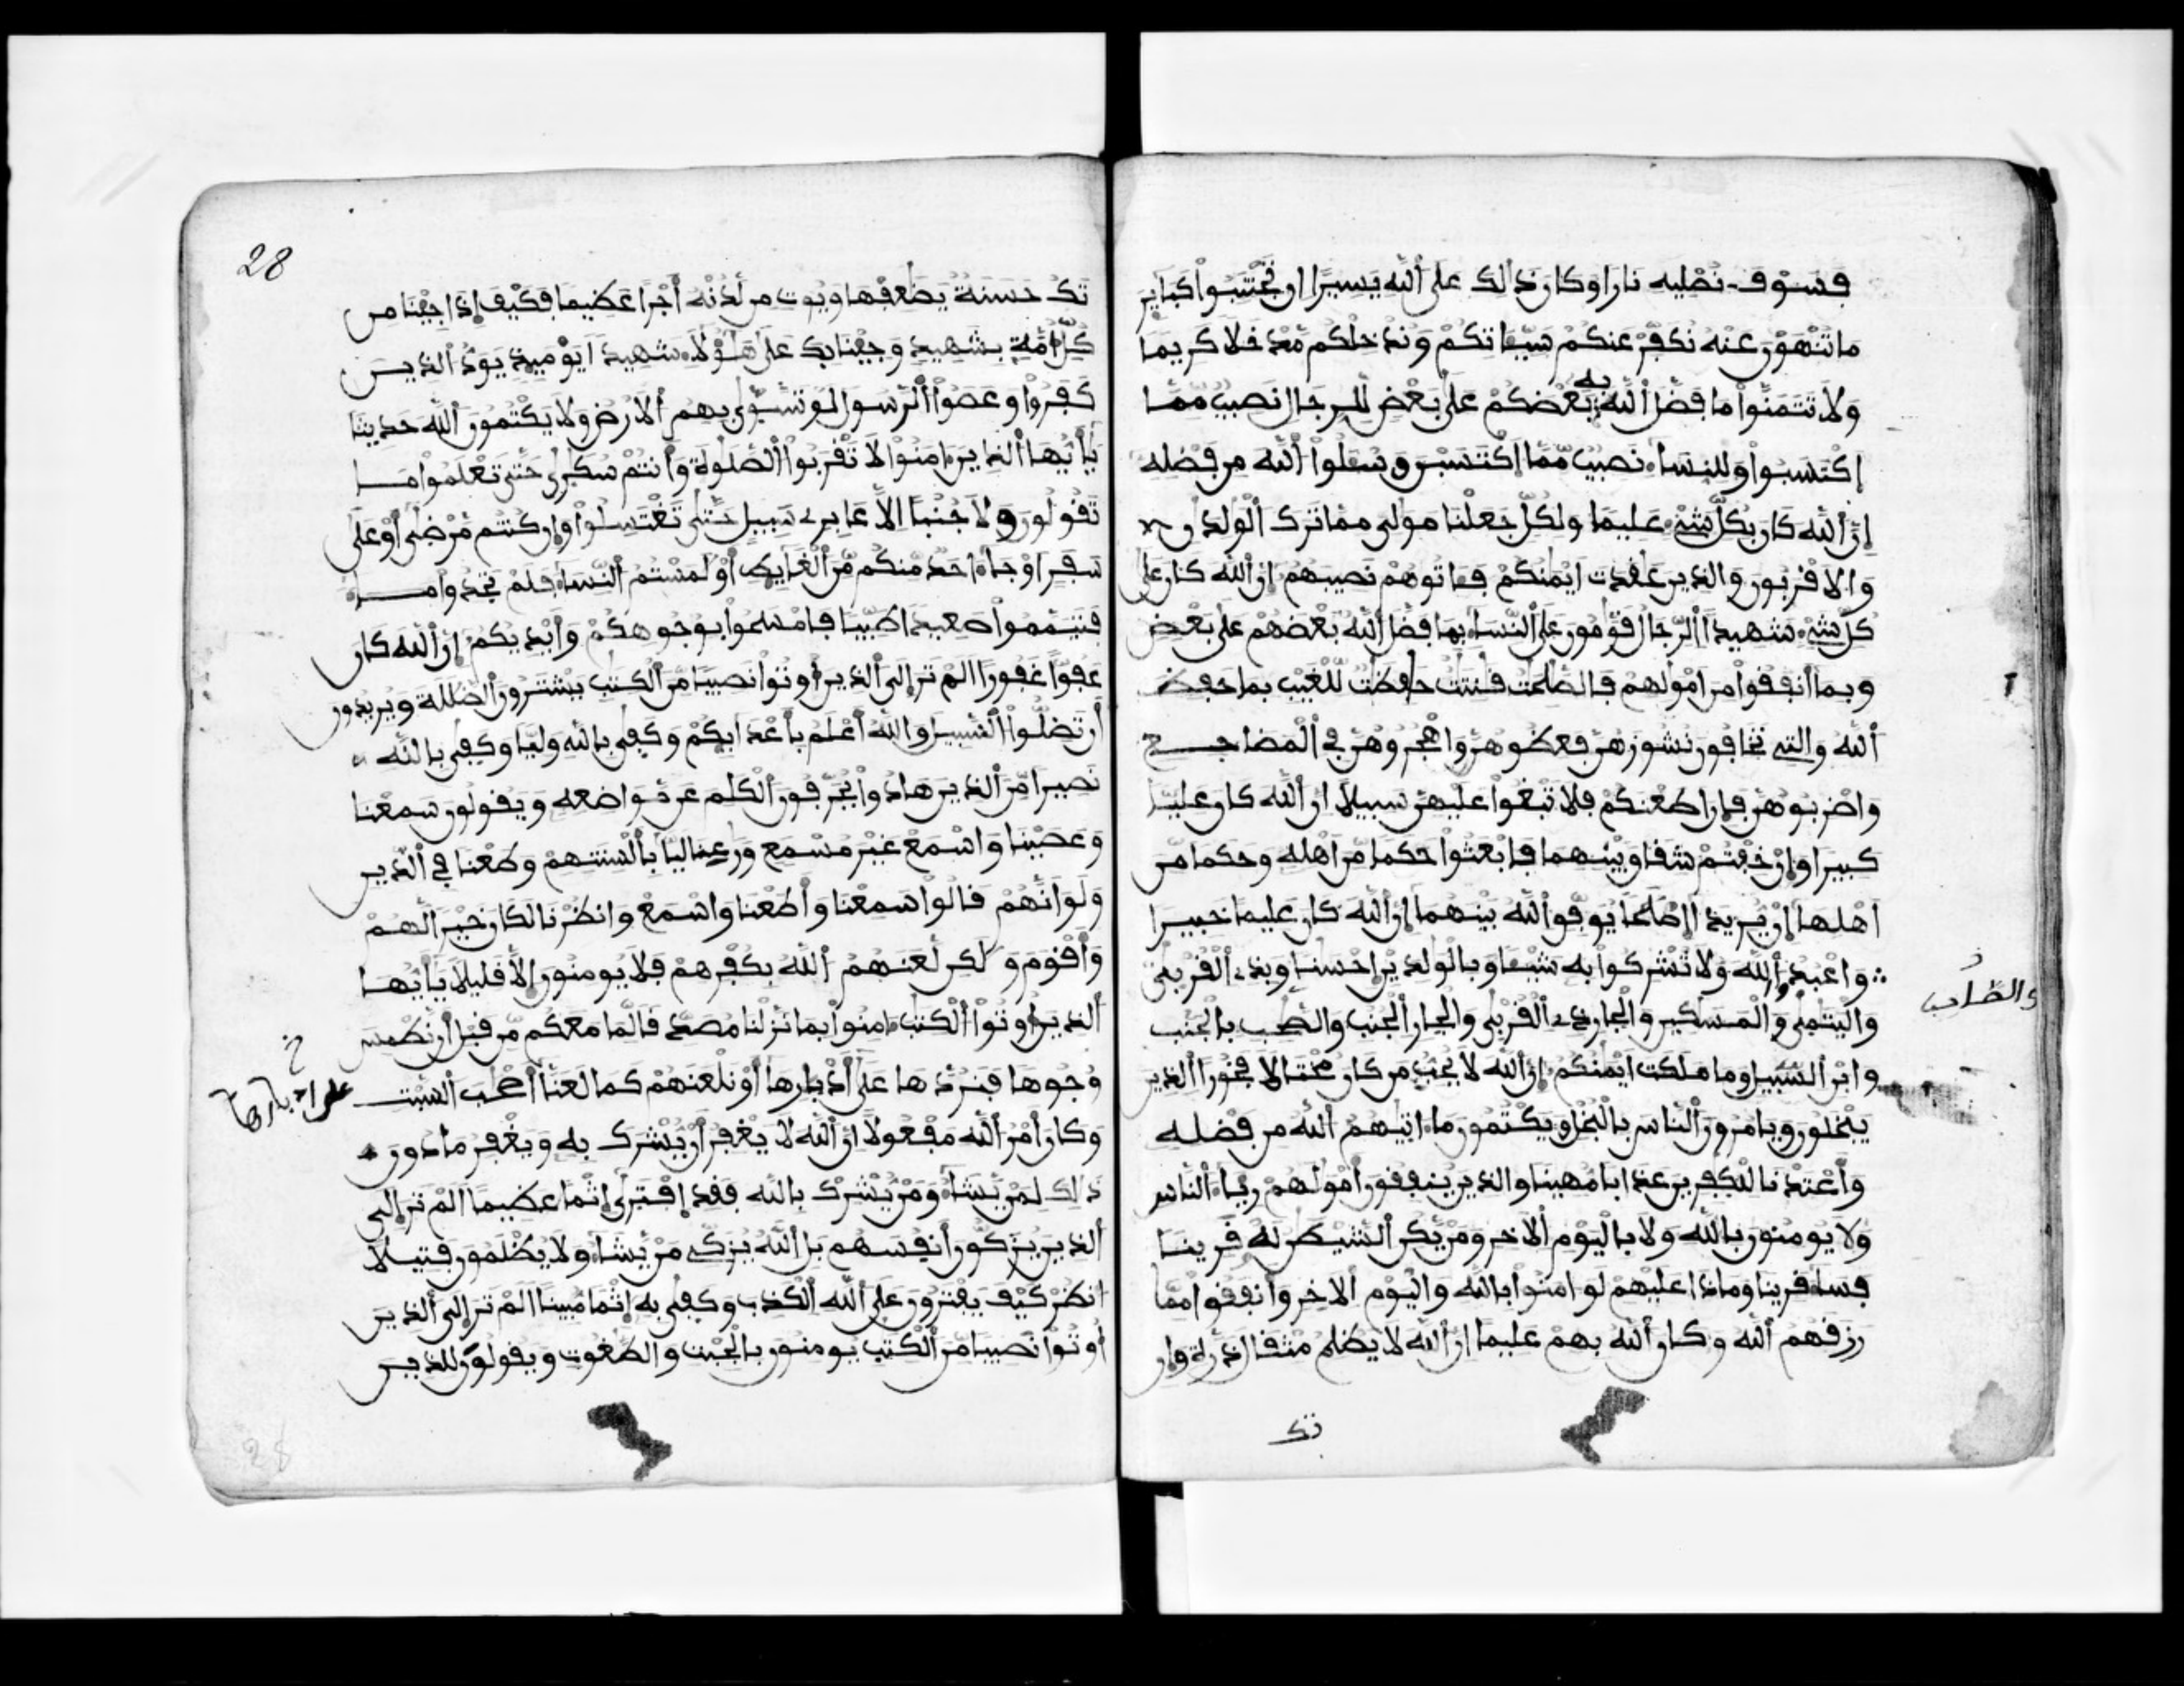 فسوف نصليه نارا وكان ذالك على الله يسيرا ان تجتنبوا كباير
ما تنهون عنه نكفر عنكم سيـاتكم وندخلكم مدخلا كريما
ولا تتمنوا ما فضل الله به بعضكم على بعض للرجال نصيب مما
اكتسبوا وللنساء نصيب مما اكتسبن وسـلوا الله من فضله
ان الله كان بكل شيء عليما ولكل جعلنا مولى مما ترك الولدان
والاقربون والذين عقدت ايمنكم فـاتوهم نصيبهم ان الله كان على
كل شيء شهيدا الرجال قومون على النساء بما فضل الله بعضهم على بعض
وبما انفقوا من امولهم فالصلحت قنتت حفظت للغيب بما حفظ
الله والتي تخافون نشوزهن فعظوهن واهجروهن في المضاجع
واضربوهن فان اطعنكم فلا تبغوا عليهن سبيلا ان الله كان عليا
كبيرا وان خفتم شقاق بينهما فابعثوا حكما من اهله وحكما من
اهلها ان يريدا اصلحا يوفق الله بينهما ان الله كان عليما خبيرا
واعبدوا الله ولا تشركوا به شيـا وبالولدين احسنا وبذي القربى
واليتمى والمسكين والجار ذي القربى والجار الجنب والصحب بالجنب
وابن السبيل وما ملكت ايمنكم ان الله لا يحب من كان مختالا فخورا الذين
يبخلون ويامرون الناس بالبخل ويكتمون ما اتيهم الله من فضله
واعتدنا للكفرين عذابا مهينا والذين ينفقون امولهم رياء الناس
ولا يومنون بالله ولا باليوم الاخر ومن يكن الشيطن له قرينا
فساء قرينا وماذا عليهم لو امنوا بالله واليوم الاخر وانفقوا مما
رزقهم الله وكان الله بهم عليما ان الله لا يظلم مثقال ذرة وان
تك
28
تك حسنة يضعفها ويوت من لدنه اجرا عظيما فكيف اذا جينا من
كل امة بشهيد وجينا بك على هؤلاء شهيدا يوميذ يود الذين
كفروا وعصوا الرسول لو تسوى بهم الارض ولا يكتمون الله حديثا
يايها الذين امنوا لا تقربوا الصلوة وانتم سكرى حتى تعلموا ما
تقولون ولا جنبا الا عابري سبيل حتى تغتسلوا وان كنتم مرضى او على
سفر او جاء احد منكم من الغايط او لمستم النساء فلم تجدوا ماء
فتيمموا صعيدا طيبا فامسحوا بوجوهكم وايديكم ان الله كان
عفوا غفورا الم تر الى الذين اوتوا نصيبا من الكتب يشترون الضللة ويريدون
ان تضلوا السبيل والله اعلم باعدايكم وكفى بالله وليا وكفى بالله
نصيرا من الذين هادوا يحرفون الكلم عن مواضعه ويقولون سمعنا
وعصينا واسمع غير مسمع ورعنا ليا بالسنتهم وطعنا في الدين
ولو انهم قالوا سمعنا واطعنا واسمع وانظرنا لكان خيرا لهم
واقوم ولكن لعنهم الله بكفرهم فلا يومنون الا قليلا يايها
الذين اوتوا الكتب امنوا بما نزلنا مصدقا لما معكم من قبل ان نطمس
وجوها فنردها على ادبارها او نلعنهم كما لعنا اصحب السبت
وكان امر الله مفعولا ان الله لا يغفر ان يشرك به ويغفر ما دون
ذالك لمن يشاء ومن يشرك بالله فقد افترى اثما عظيما الم تر الى
الذين يزكون انفسهم بل الله يزكي من يشاء ولا يظلمون فتيلا
انظر كيف يفترون على الله الكذب وكفى به اثما مبينا الم تر الى الذين
اوتوا نصيبا من الكتب يومنون بالجبت والطغوت ويقولون للذين